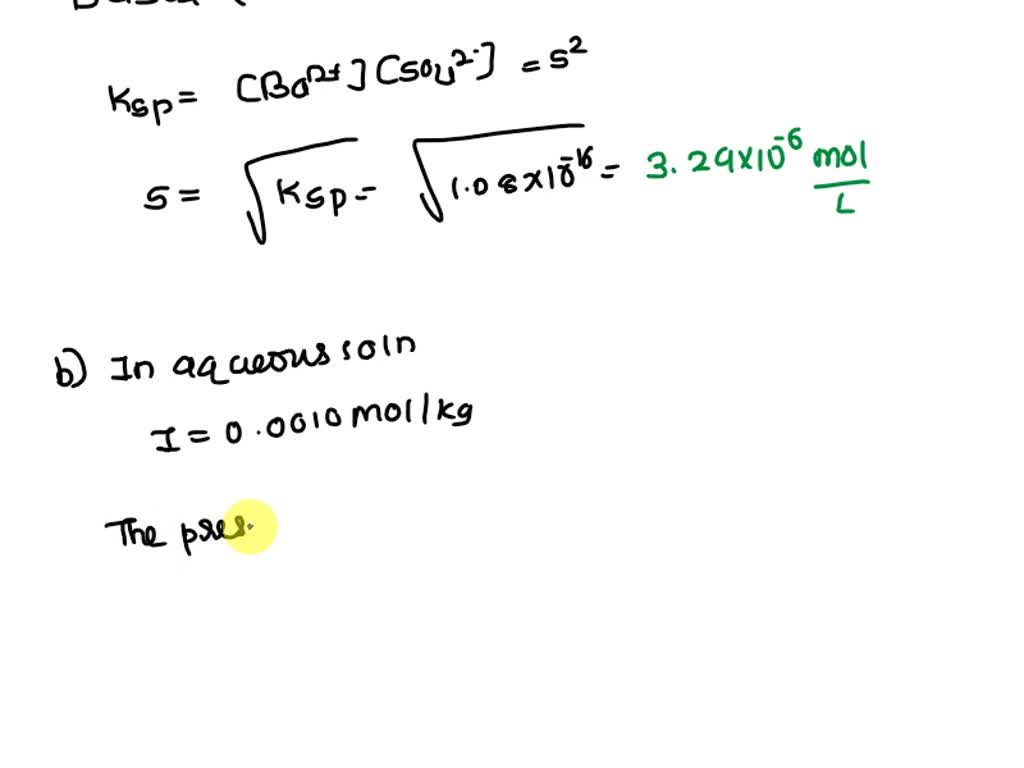 Ksp = [Ba²⁺] [SO₄²⁻] = s²
s = √Ksp = √1.08×10⁻¹⁶ = 3.29×10⁻⁶ mol/L
b) In aqueous soln
I = 0.0010 mol/kg
The pres.